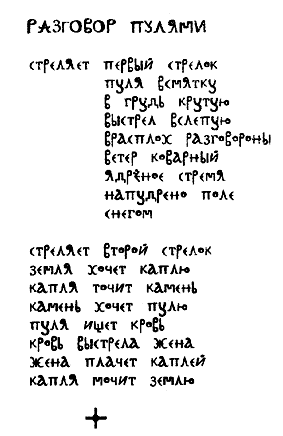 РАЗГОВОР ПУЛЯМИ
стреляет первый стрелок
пуля всмятку
в грудь крутую
выстрел вслепую
врасплох разговороны
ветер коварный
ядрёное стремя
напудрено поле
снегом
стреляет второй стрелок
земля хочет каплю
капля точит камень
камень хочет пулю
пуля ищет кровь
кровь выстрела жена
жена плачет каплей
капля мочит землю